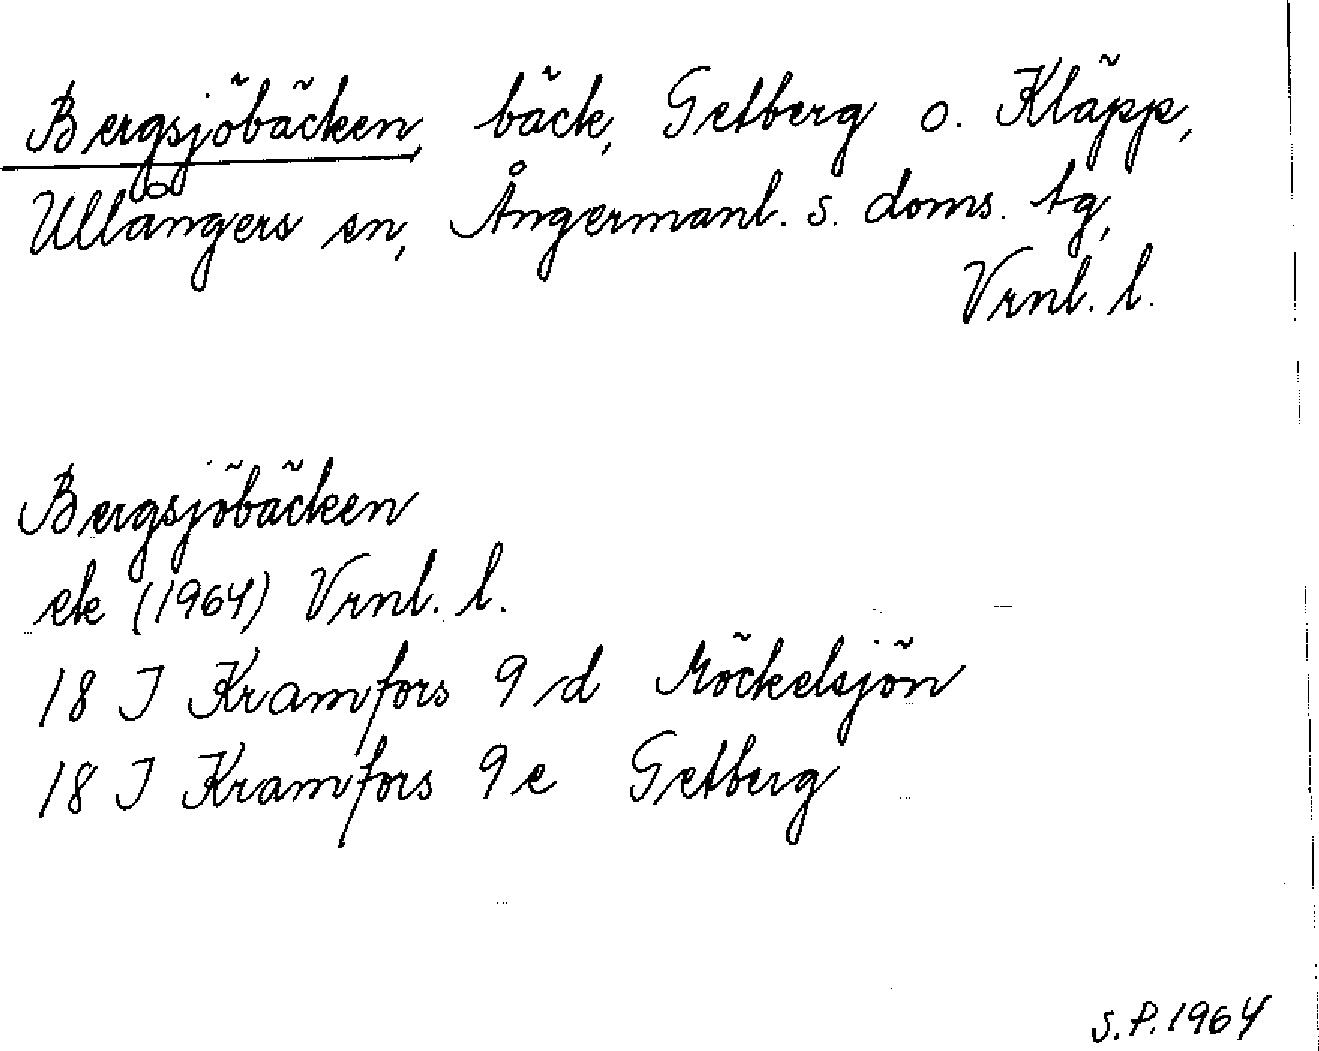 Bergsjöbäcken, bäck, Getberg o. Kläpp,
Ullångers sn, Ångermanl. s. doms. tg,
Vrnl. l.
Bergsjöbäcken
ek (1964) Vrnl. l.
18 J Kramfors 9 d Möckelsjön
18 J Kramfors 9 e Getberg
S.P. 1964